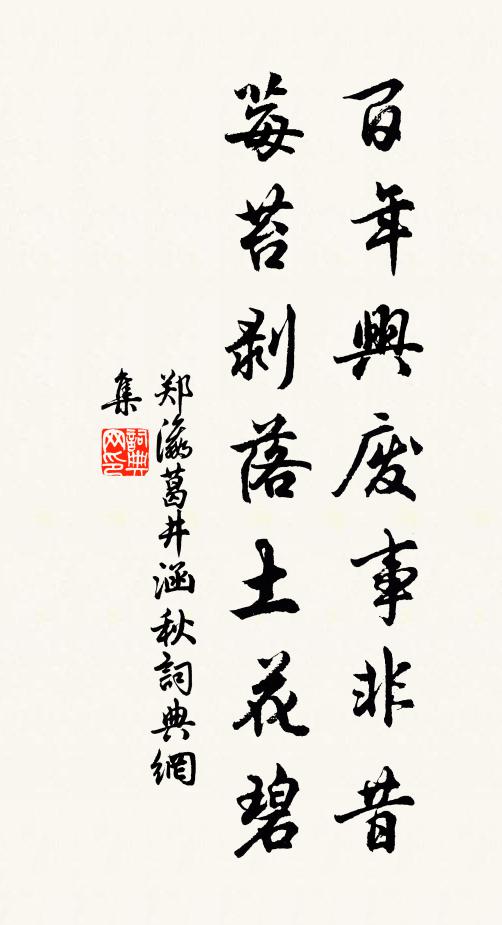 百年興废事非昔
莓苔剥落土花碧
郑瀛葛井涵秋詞典網
集
詞典网印